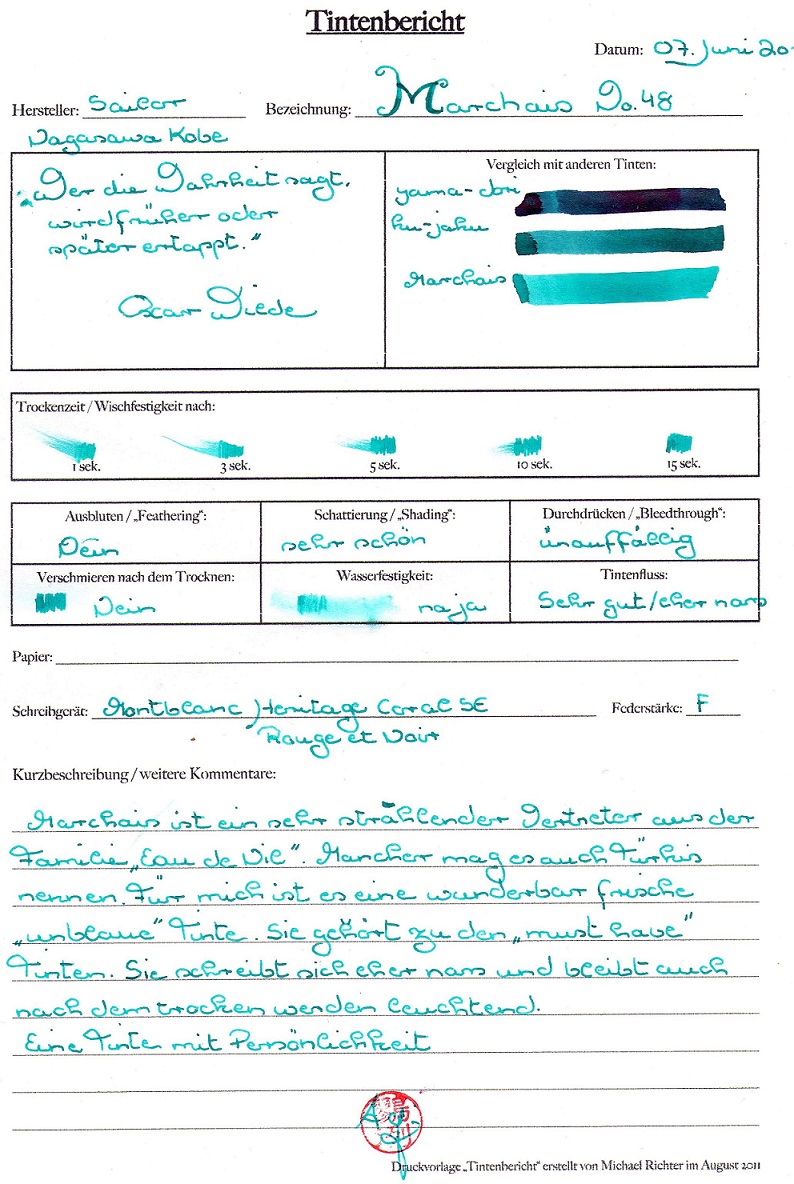 Tintenbericht
Datum: 07. Juni 20
Hersteller: Sailor Bezeichnung: Marchais No. 48
Nagasawa Kobe
„Wer die Wahrheit sagt,
wird früher oder
später ertappt.“
Oscar Wilde
Vergleich mit anderen Tinten:
yama-dori
ku-jaku
Marchais
Trockenzeit / Wischfestigkeit nach:
1 sek. 3 sek. 5 sek. 10 sek. 15 sek.
Ausbluten / „Feathering“: Schattierung / „Shading“: Durchdrücken / „Bleedthrough“:
Nein sehr schön unauffällig
Verschmieren nach dem Trocknen: Wasserfestigkeit: Tintenfluss:
Nein na ja Sehr gut/eher nass
Papier:
Schreibgerät: Montblanc Heritage Coral SE Federstärke: F
Rouge et Noir
Kurzbeschreibung / weitere Kommentare:
Marchais ist ein sehr strahlender Vertreter aus der
Familie „Eau de Nil“. Mancher mag es auch Türkis
nennen. Für mich ist es eine wunderbar frische
„unblaue“ Tinte. Sie gehört zu den „must have“
Tinten. Sie schreibt sich eher nass und bleibt auch
nach dem trocken werden leuchtend.
Eine Tinte mit Persönlichkeit
Druckvorlage „Tintenbericht“ erstellt von Michael Richter im August 2011